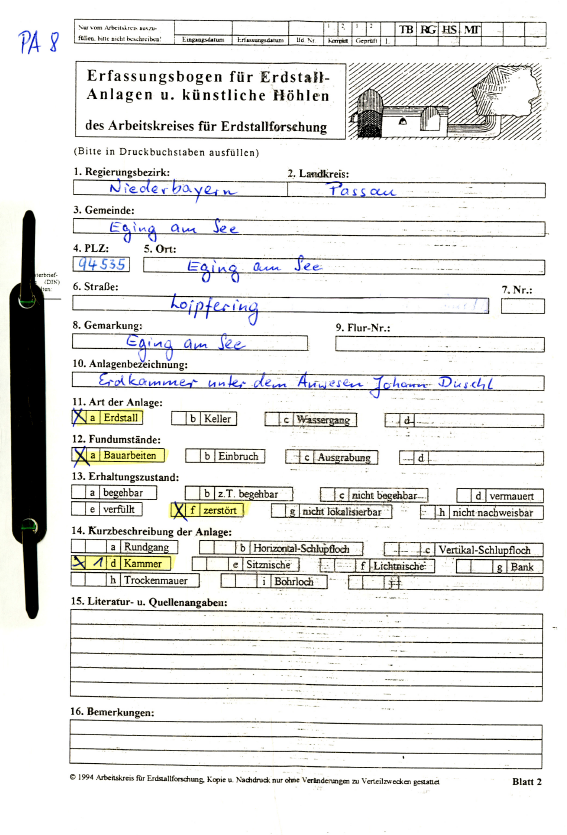 PA 8
Nur vom Arbeitskreis auszu-
füllen, bitte nicht beschreiben!
Eingangsdatum Erfassungsdatum lfd Nr. Komplett Geprüft
1. 2. 1 2
TB RG HS MT
Erfassungsbogen für Erdstall-
Anlagen u. künstliche Höhlen
des Arbeitskreises für Erdstallforschung
(Bitte in Druckbuchstaben ausfüllen)
1. Regierungsbezirk: 2. Landkreis:
Niederbayern Passau
3. Gemeinde:
Eging am See
4. PLZ: 5. Ort:
94535 Eging am See
6. Straße: 7. Nr.:
Loipfering
8. Gemarkung: 9. Flur-Nr.:
Eging am See
10. Anlagenbezeichnung:
Erdkammer unter dem Anwesen Johann Duschl
11. Art der Anlage:
X a Erdstall b Keller c Wassergang d
12. Fundumstände:
X a Bauarbeiten b Einbruch c Ausgrabung d
13. Erhaltungszustand:
a begehbar b z.T. begehbar c nicht begehbar d vermauert
e verfüllt X f zerstört g nicht lokalisierbar h nicht nachweisbar
14. Kurzbeschreibung der Anlage:
a Rundgang b Horizontal-Schlupfloch c Vertikal-Schlupfloch
X 1 d Kammer e Sitznische f Lichtnische g Bank
h Trockenmauer i Bohrloch
15. Literatur- u. Quellenangaben:
16. Bemerkungen:
© 1994 Arbeitskreis für Erdstallforschung, Kopie u. Nachdruck nur ohne Veränderungen zu Verteilzwecken gestattet Blatt 2